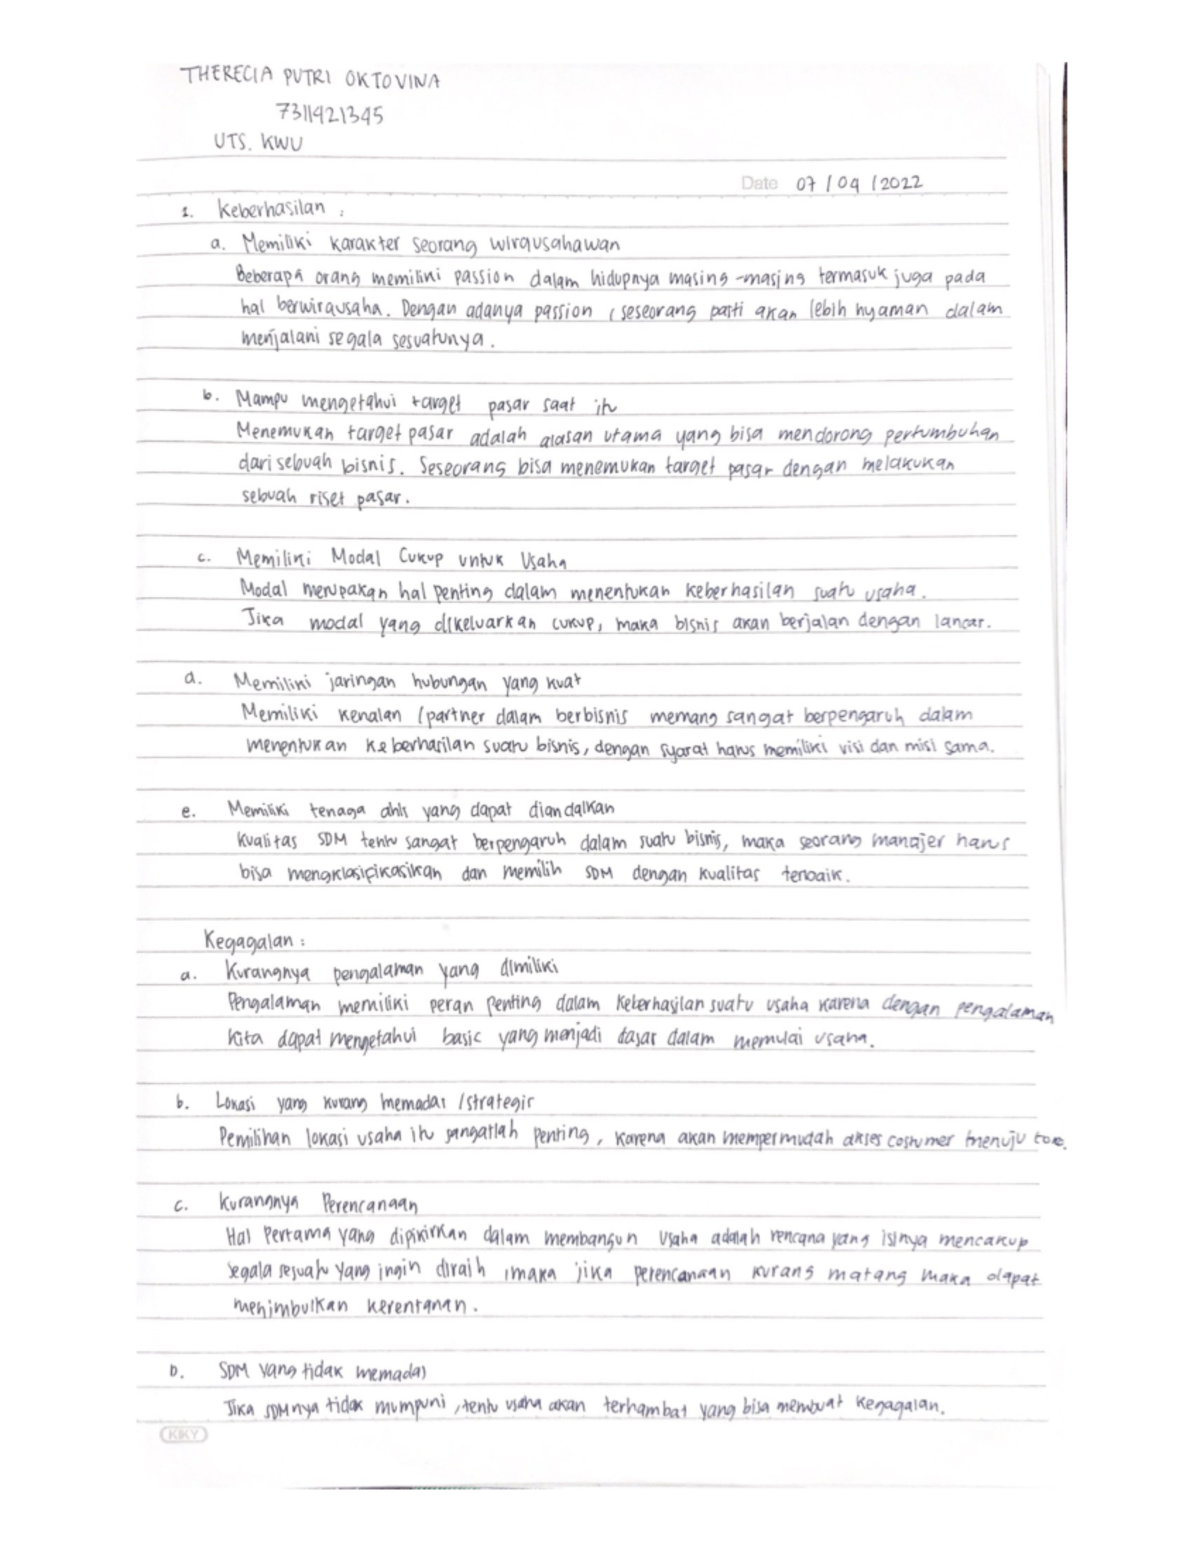 THERECIA PUTRI OKTOVINA
7311421345
UTS. KWU
Date 07 / 04 / 2022
1. Keberhasilan :
a. Memiliki karakter seorang wirausahawan
Beberapa orang memiliki passion dalam hidupnya masing-masing termasuk juga pada
hal berwirausaha. Dengan adanya passion, seseorang pasti akan lebih nyaman dalam
menjalani segala sesuatunya.
b. Mampu mengetahui target pasar saat itu
Menemukan target pasar adalah alasan utama yang bisa mendorong pertumbuhan
dari sebuah bisnis. Seseorang bisa menemukan target pasar dengan melakukan
sebuah riset pasar.
c. Memiliki Modal Cukup untuk Usaha
Modal merupakan hal penting dalam menentukan keberhasilan suatu usaha.
Jika modal yang dikeluarkan cukup, maka bisnis akan berjalan dengan lancar.
d. Memiliki jaringan hubungan yang kuat
Memiliki kenalan /partner dalam berbisnis memang sangat berpengaruh dalam
menentukan keberhasilan suatu bisnis, dengan syarat harus memiliki visi dan misi sama.
e. Memiliki tenaga ahli yang dapat diandalkan
Kualitas SDM tentu sangat berpengaruh dalam suatu bisnis, maka seorang manajer harus
bisa mengklasifikasikan dan memilih SDM dengan kualitas terbaik.
Kegagalan :
a. Kurangnya pengalaman yang dimiliki
Pengalaman memiliki peran penting dalam keberhasilan suatu usaha karena dengan pengalaman
kita dapat mengetahui basic yang menjadi dasar dalam memulai usaha.
b. Lokasi yang kurang memadai /strategis
Pemilihan lokasi usaha itu sangatlah penting, karena akan mempermudah akses costumer menuju toko.
c. Kurangnya Perencanaan
Hal Pertama yang dipikirkan dalam membangun usaha adalah rencana yang isinya mencakup
segala sesuatu yang ingin diraih, maka jika perencanaan kurang matang maka dapat
menimbulkan kerentanan.
D. SDM yang tidak memadai
Jika SDMnya tidak mumpuni, tentu usaha akan terhambat yang bisa membuat kegagalan.
KIKY